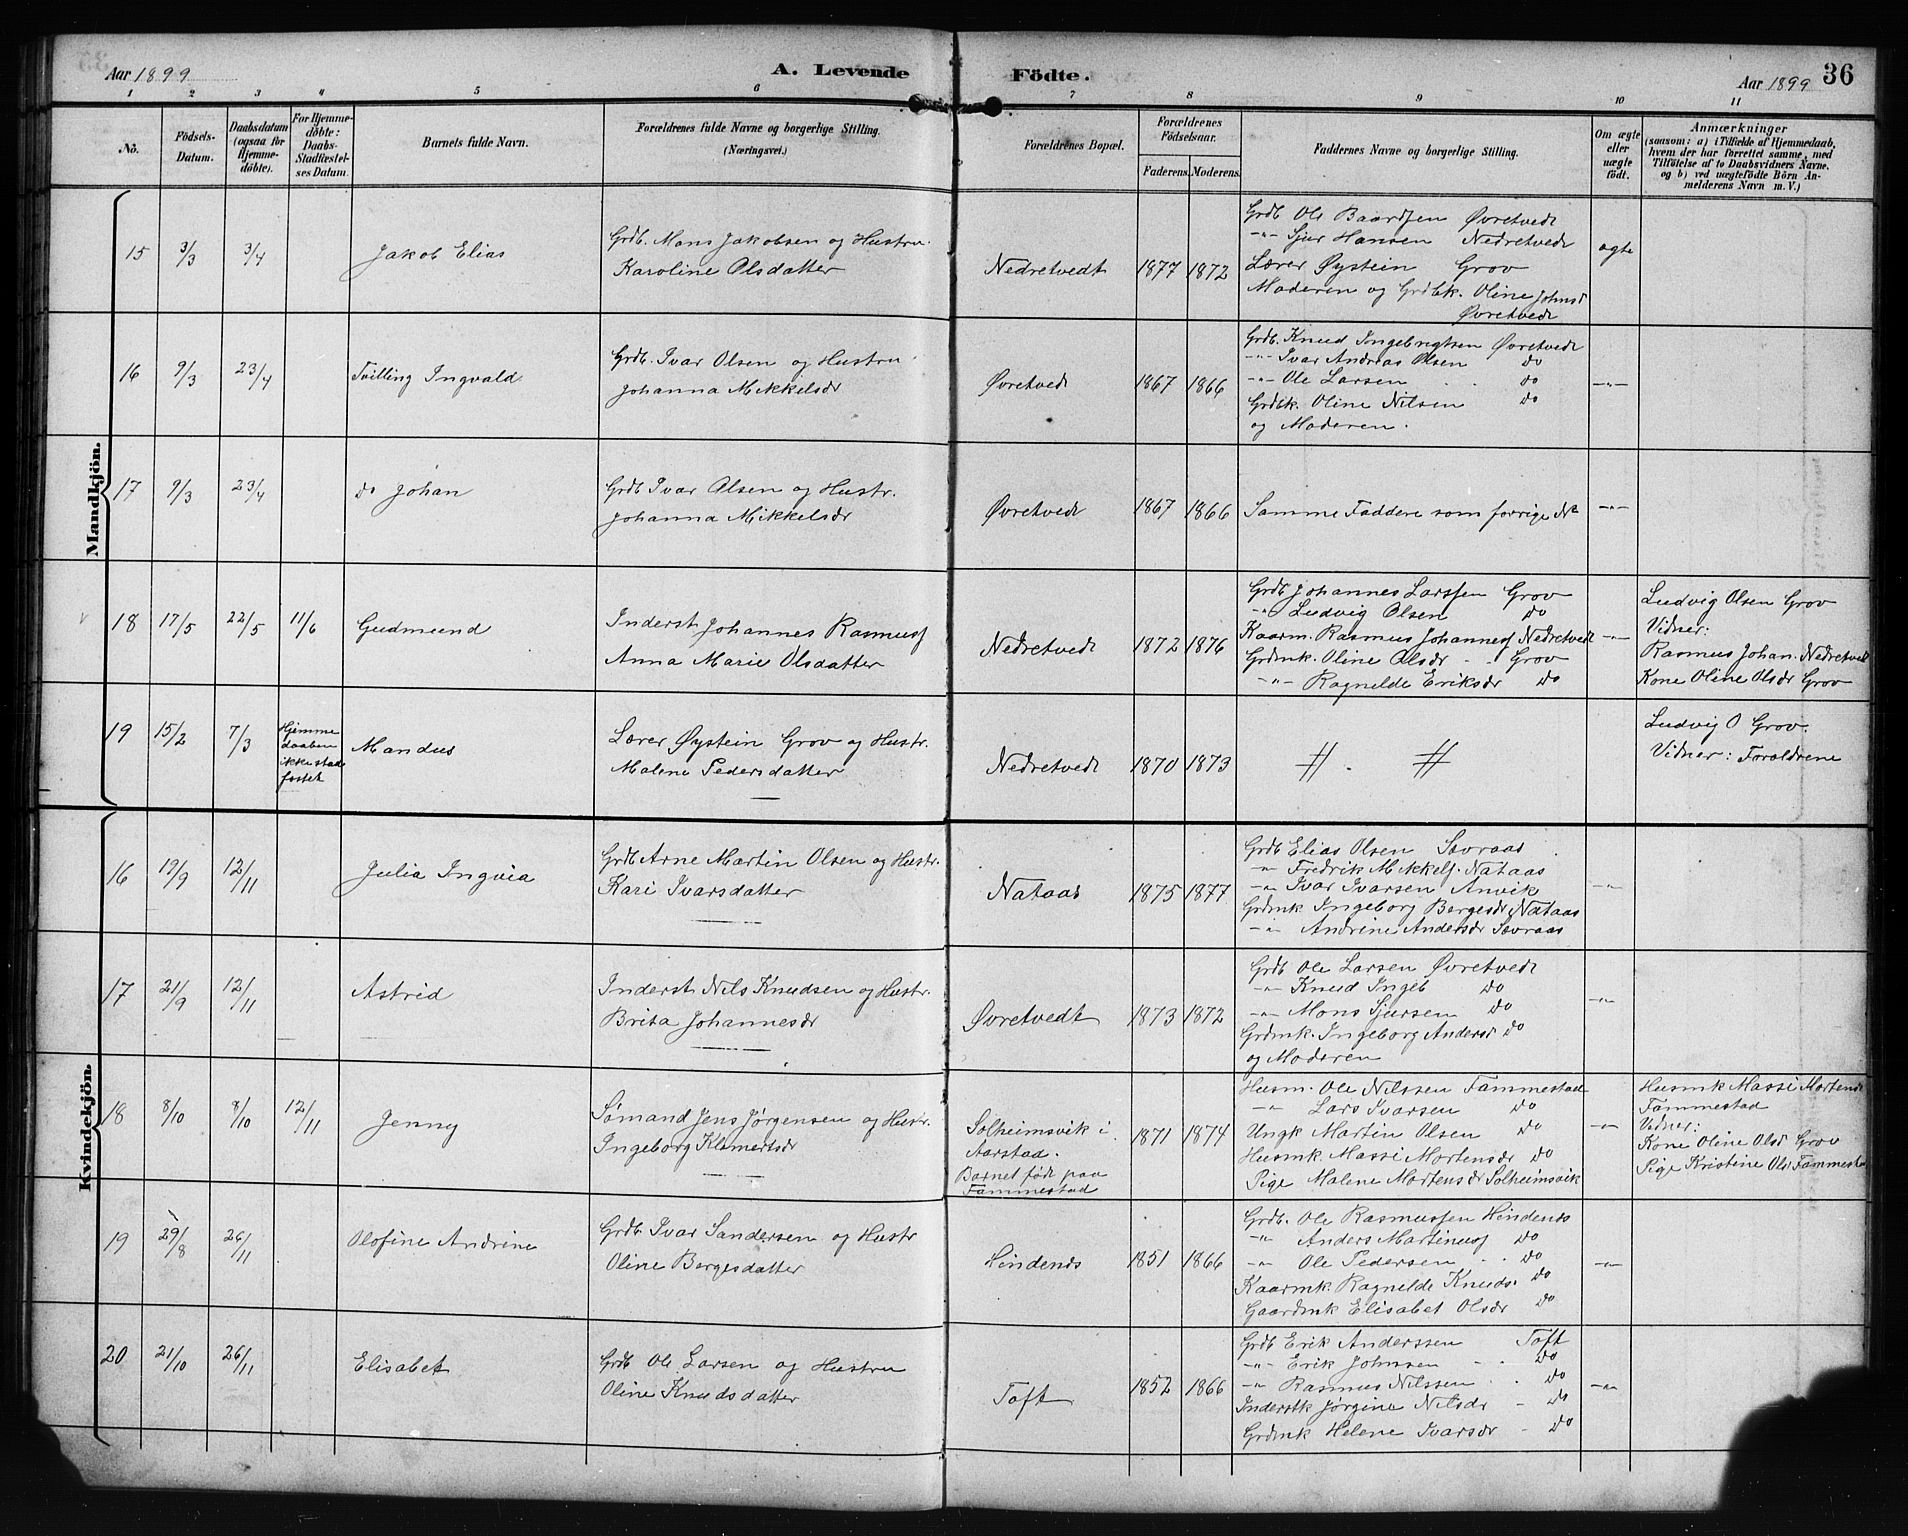 Aar 1899
A. Levende Födte.
Aar 1899 36
1 2 3 4 5 6 7 8 9 10 11
No.
Födsels-
Datum.
Daabsdatum
(ogsaa for
Hjemme-
döbte).
For Hjemme-
döbte:
Daabs-
Stadfæstel-
ses Datum.
Barnets fulde Navn.
Forældrenes fulde Navne og borgerlige Stilling.
(Næringsvei.)
Forældrenes Bopæl.
Forældrenes
Födselsaar.
Faderens. Moderens.
Faddernes Navne og borgerlige Stilling.
Om ægte
eller
uægte
födt.
Anmærkninger
(saasom: a) i Tilfælde af Hjemmedaab,
hvem der har forrettet samme, med
Tilföielse af to Daabsvidners Navne,
og b) ved uægtefödte Börn An-
melderens Navn m. V.)
Mandkjön.
15 3/3 3/4 Jakob Elias
Grdb. Mons Jakobsen og Hustru
Karoline Olsdatter
Nedretvedt 1877 1872
Grdb Ole Baardsen Øvretvedt
-"- Sjur Hansen Nedretvedt
Lærer Øystein Grov
Moderen og Grdbk. Oline Johnsd
Øvretvedt
ægte
16 9/3 23/4 Tvilling Ingvald
Grdb. Ivar Olsen og Hustru
Johanna Mikkelsdr
Øvretvedt 1867 1866
Grdb. Knud Ingebrigtsen Øvretvedt
-"- Ivar Andreas Olsen do
-"- Ole Larsen do
Grdbk. Oline Nilsen do
og Moderen.
-"-
17 9/3 23/4 do Johan
Grdb Ivar Olsen og Hustr.
Johanna Mikkelsdr
Øvretvedt 1867 1866
Samme Faddere som forrige No
-"-
18 17/5 22/5 11/6 Gudmund
Inderst Johannes Rasmuss
Anna Marie Olsdatter
Nedretvedt 1872 1876
Grdb Johannes Larssen Grov
-"- Ludvig Olsen do
Kaarm. Rasmus Johanness Nedretvedt
Grdmk. Oline Olsdr Grov
-"- Ragnelde Eriksdr do
-"-
Ludvig Olsen Grov
Vidner:
Rasmus Johan. Nedretvedt
Kone Oline Olsdr Grov
19 15/2 7/3
Hjemme
daaben
ikke stad
fæstet
Mandus
Lærer Øystein Grov og Hustr.
Malene Pedersdatter
Nedretvedt 1870 1873
// . //
Ludvig O Grov.
Vidner: Forældrene
Kvindekjön.
16 19/9 12/11 Julia Ingvia
Grdb Arne Martin Olsen og Hustr.
Kari Ivarsdatter
Nataas 1875 1877
Grdb Elias Olsen Sævraas
-"- Fredrik Mikkels. Nataas
-"- Ivar Ivarsen Anvik
Grdmk Ingeborg Børgesdr Nataas
-"- Andrine Andersdr Sævraas
-"-
17 21/9 12/11 Astrid
Inderst Nils Knudsen og Hustr.
Brita Johannesdr
Øvretvedt 1873 1872
Grdb Ole Larsen Øvretvedt
-"- Knud Ingeb do
-"- Mons Sjursen do
Grdmk. Ingeborg Andersd do
og Moderen
-"-
18 8/10 8/10 12/11 Jenny
Sømand Jens Jørgensen og Hustr.
Ingeborg Klemetsdr
Solheimsvik i
Aarstad.
Barnet født paa
Fammestad
1871 1874
Husm. Ole Nilssen Fammestad
-"- Lars Ivarsen do
Ungk Martin Olsen do
Husmk Massi Mortensdr do
Pige Malene Mortensdr Solheimsvik
-"-
Husmk Massi Mortensd
Fammestad
Vidner:
Kone Oline Olsd Grov
Pige Kristine Ols Fammestad
19 29/8 26/11 Olofine Andrine
Grdb Ivar Sandersen og Hustr
Oline Børgesdatter
Hindenes 1851 1866
Grdb. Ole Rasmussen Hindenes
-"- Anders Martinuss do
-"- Ole Pedersen do
Kaarmk. Ragnelde Knuds. do
Gaardmk Elisabet Olsdr do
-"-
20 21/10 26/11 Elisabet
Grdb Ole Larsen og Hustru
Oline Knudsdatter
Toft 1852 1866
Grdb Erik Anderssen Toft
-"- Erik Johnsen do
-"- Rasmus Nilssen do
Inderstk Jørgine Nilsdr do
Grdmk Helene Ivarsdr do
-"-